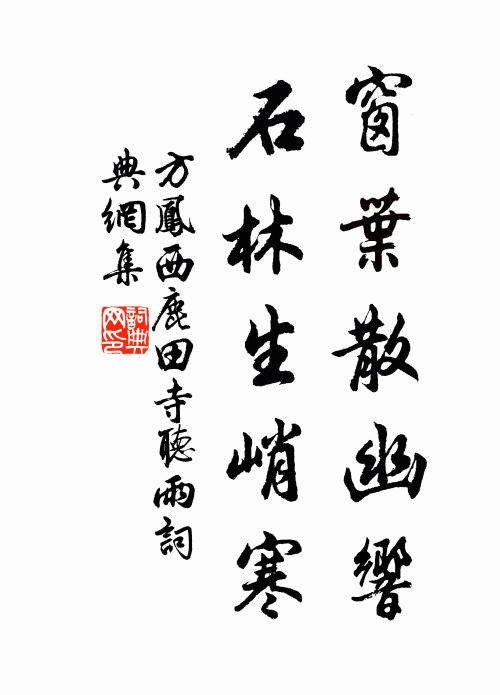 窗葉散幽響
石林生峭寒
方鳳西鹿田寺聽雨詞
典網集
詞典网印